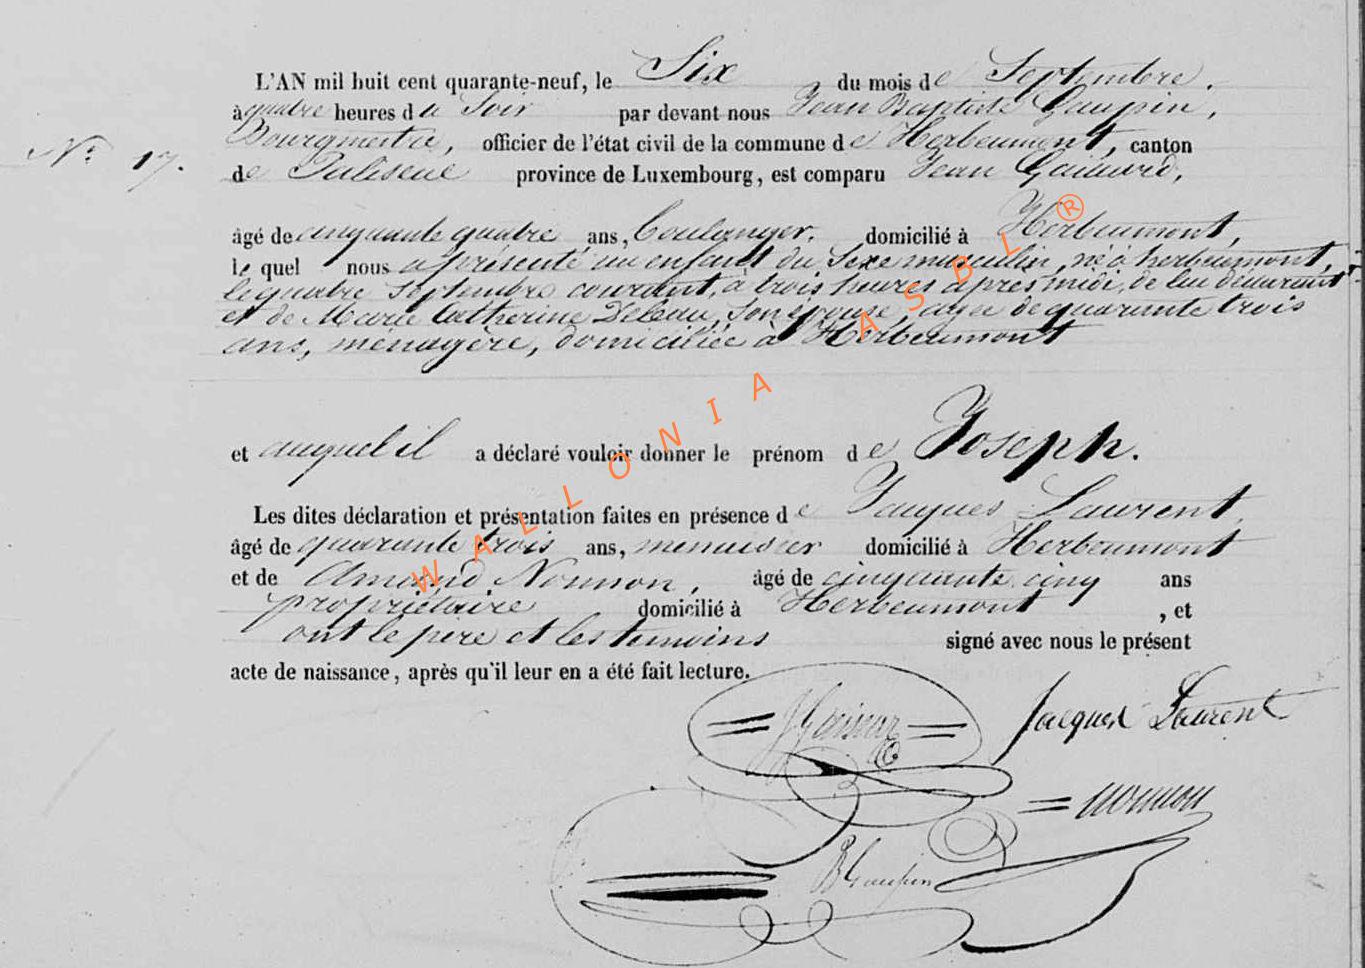 L'AN mil huit cent quarante-neuf, le Six du mois de Septembre.
à quatre heures du Soir par devant nous Jean Baptiste Gaupin,
Bourgmestre, officier de l'état civil de la commune de Herbeumont, canton
N° 17.
de Paliseul province de Luxembourg, est comparu Jean Gaillard,
âgé de cinquante quatre ans, Boulanger. domicilié à Herbeumont,
le quel nous a présenté un enfant du Sexe masculin, né à herbeumont,
le quatre Septembre courant, à trois heures après midi, de lui déclarant
et de Marie Catherine Deleau, Son épouse, agée de quarante trois
ans, ménagère, domiciliée à Herbeumont
et auquel il a déclaré vouloir donner le prénom de Joseph.
Les dites déclaration et présentation faites en présence de Jacques Laurent,
âgé de quarante trois ans, menuisier domicilié à Herbeumont
et de Amand Nonnon, âgé de cinquante cinq ans
propriétaire domicilié à Herbeumont, et
ont le père et les temoins signé avec nous le présent
acte de naissance, après qu'il leur en a été fait lecture.
Jacques Laurent
nonnon
B Gaupin
WALLONIA ASBL ®